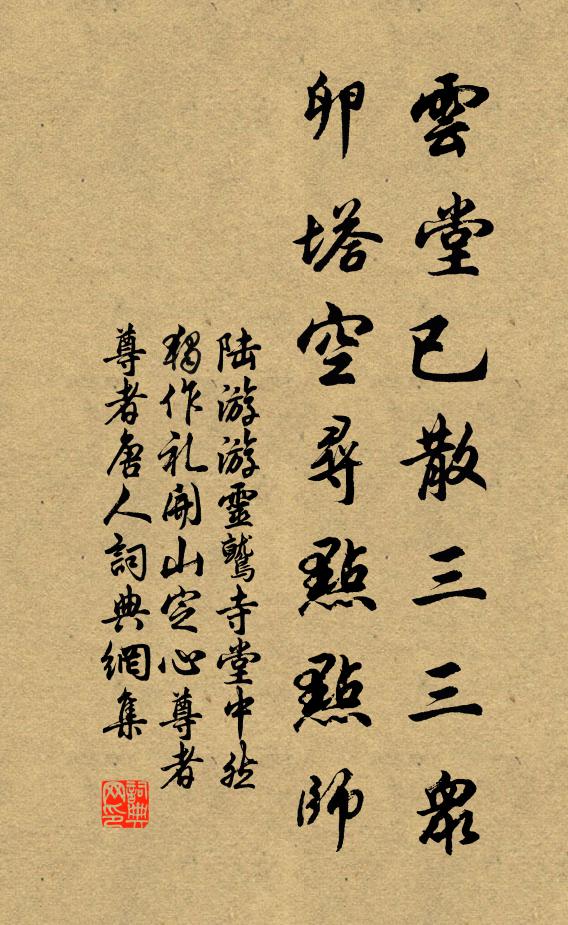 雲堂已散三三衆
卵塔空尋點點師
陸游游靈鷲寺堂中然
獨作礼開山定心尊者
尊者唐人詞典網集
詞典
网印